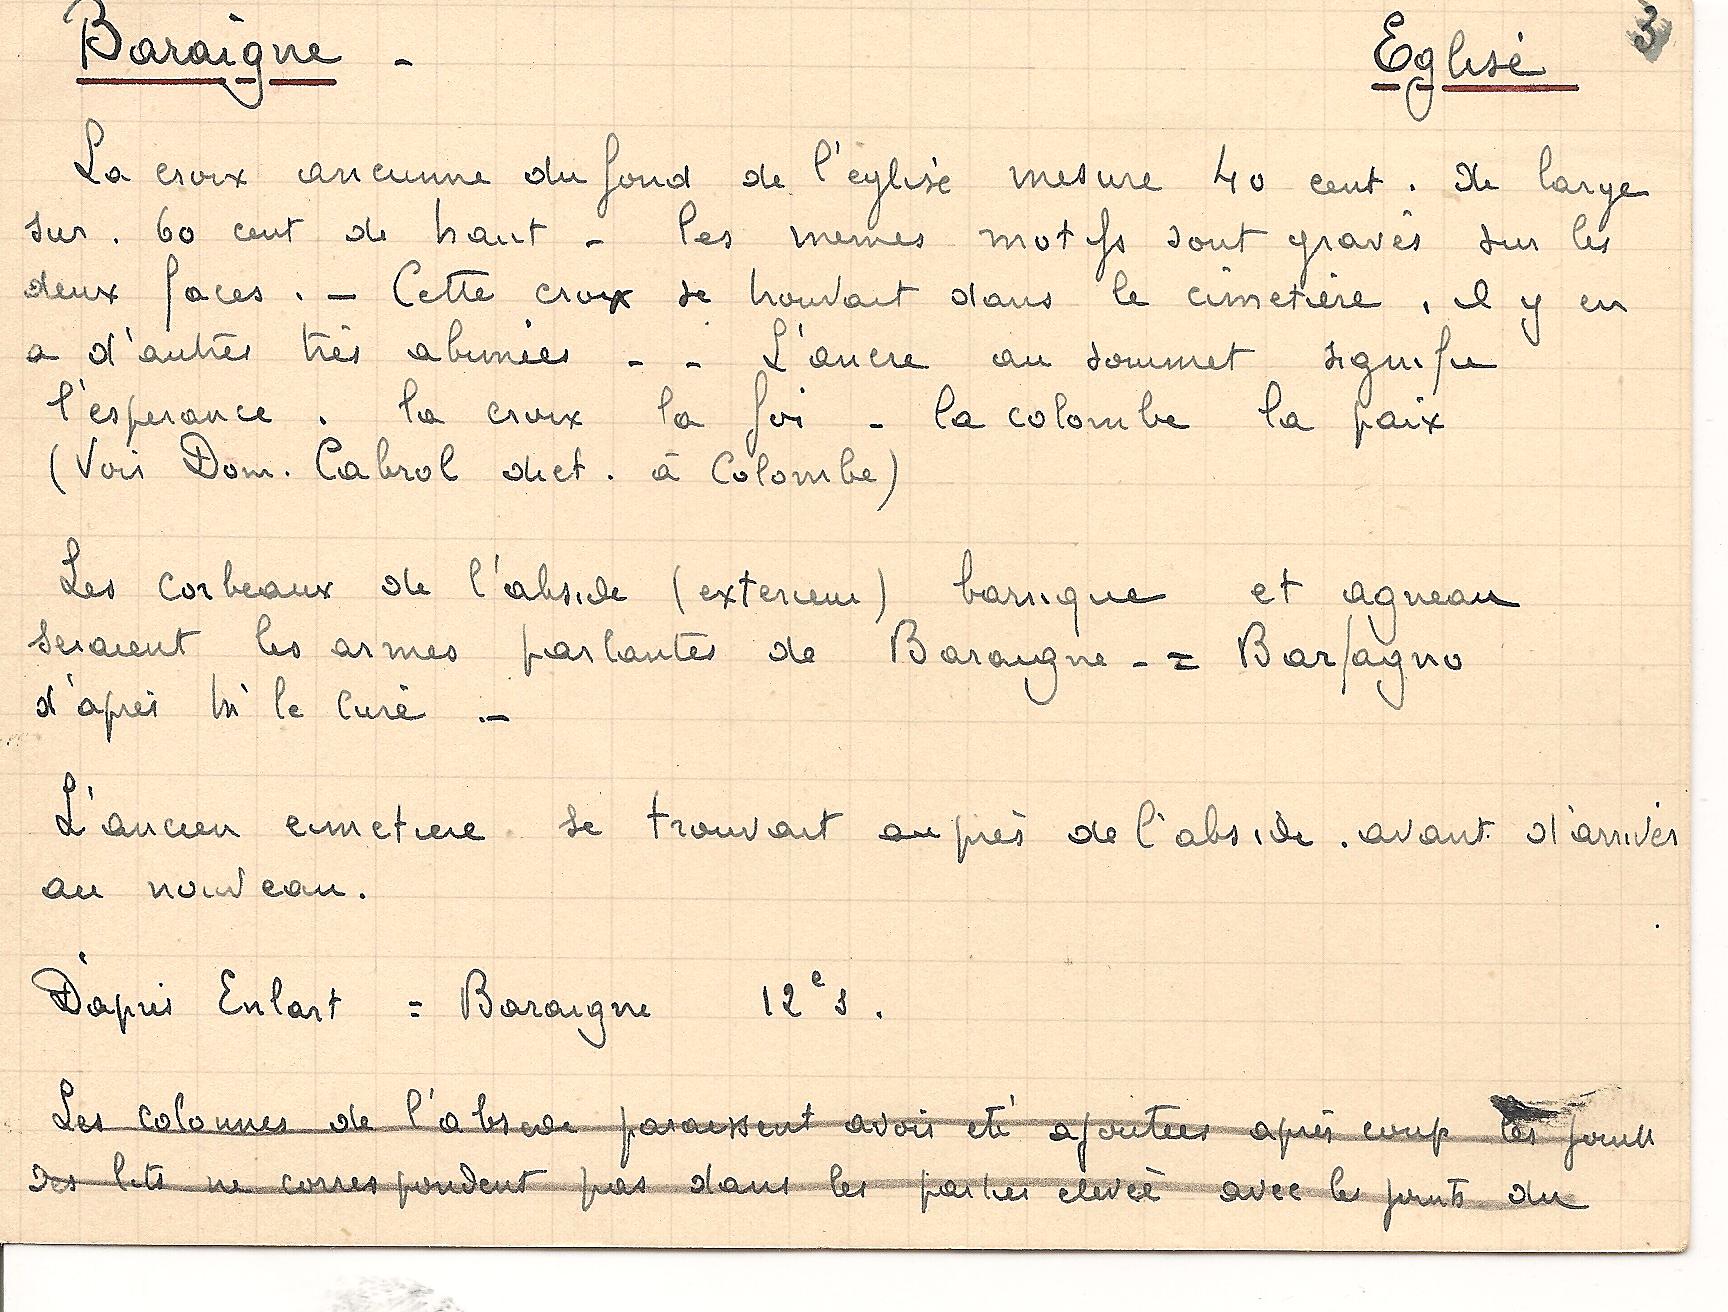 Baraigne - Eglise 3
La croix ancienne du fond de l'église mesure 40 cent. de large
sur. 60 cent de haut - les memes motifs sont gravés sur les
deux faces. - Cette croix se trouvait dans le cimetière, il y en
a d'autres très abimées - - L'ancre au sommet signifie
l'esperance. la croix la foi - la colombe la paix
(Voir Dom. Cabrol dict. à Colombe)
Les corbeaux de l'abside (exterieur) barrique et agneau
seraient les armes parlantes de Baraigne - = Bar/agno
d'après Mr le Curé -
L'ancien cimetiere se trouvait auprès de l'abside. avant d'arriver
au nouveau.
D'après Enlart = Baraigne 12e s.
Les colonnes de l'abside paraissent avoir été ajoutées après coup les joints
des lits ne correspondent pas dans les parties elevée avec les joints du